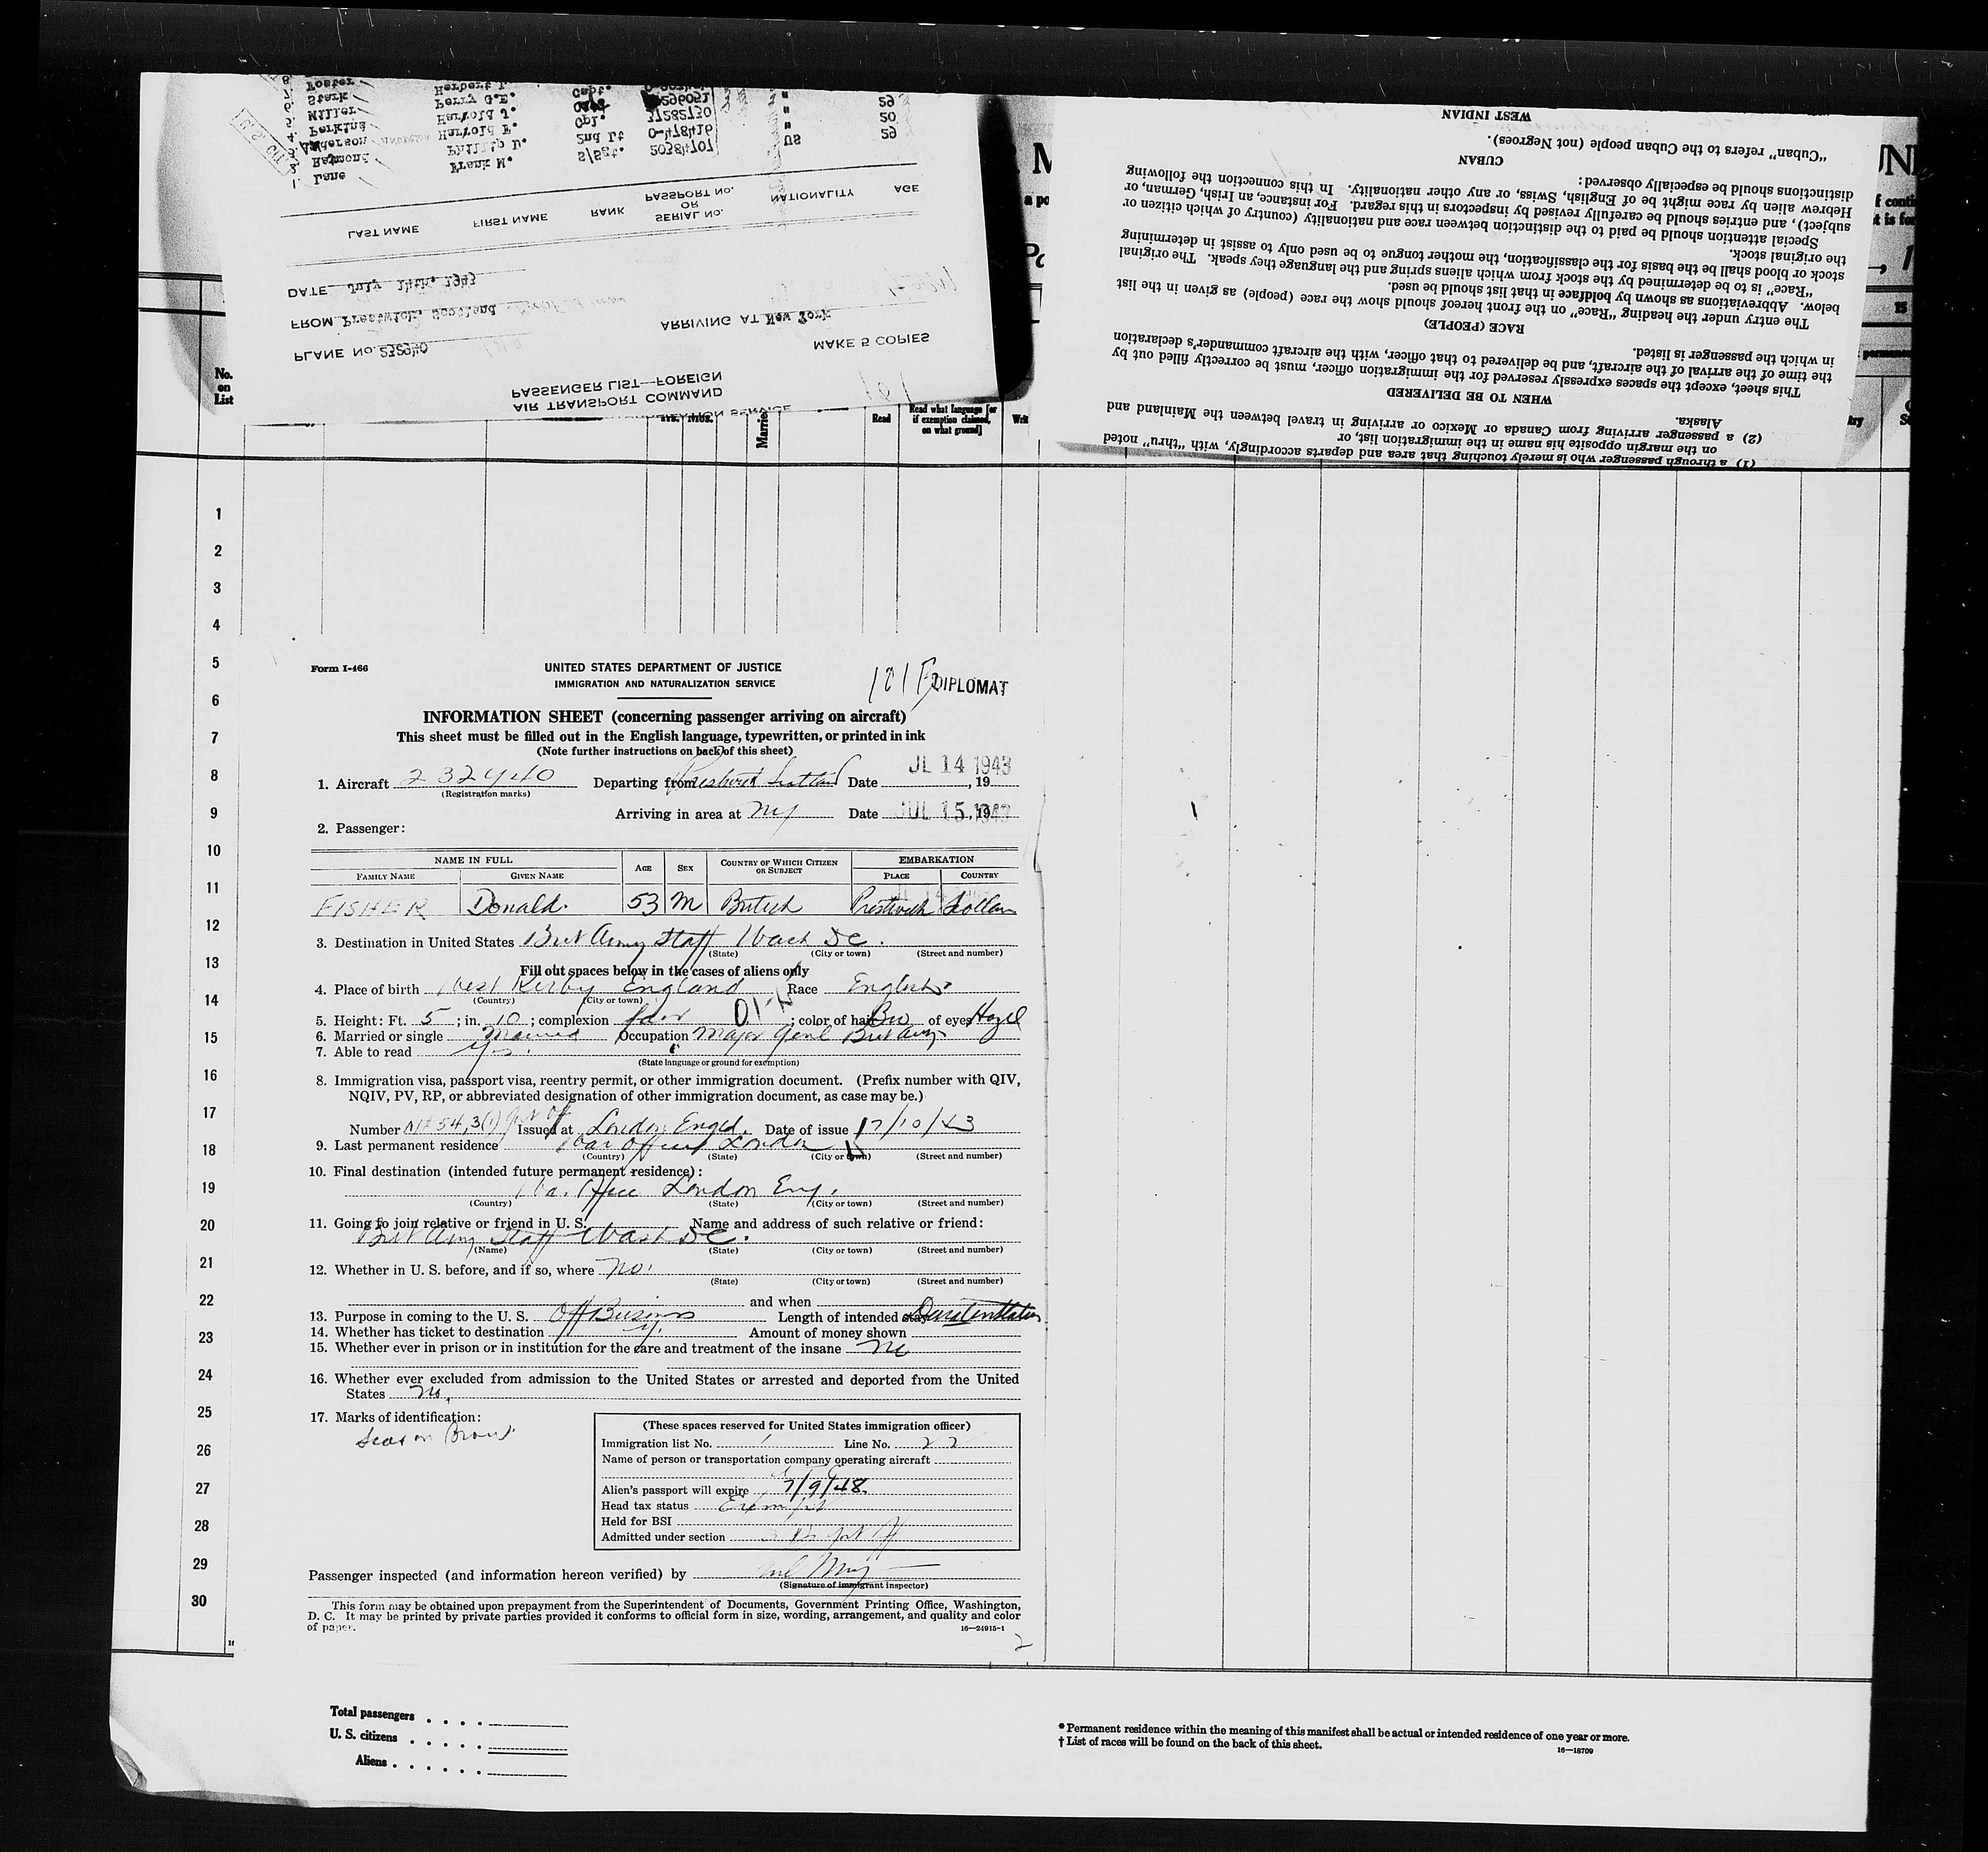 8. Foster Herbert
7. Stark Perry G.E. Capt.
6. Miller Harold J. Cpl. 37282730 " 29
5. Perkins Harold F. 2nd Lt 0-478416 " 20
3. Anderson Phillip D. S/Sgt. 20384707 US 29
2. Raymond Frank M.
1. Lane
LAST NAME FIRST NAME RANK SERIAL No. OR PASSPORT No. NATIONALITY AGE
DATE July 14th, 1943
FROM Prestwick, Scotland ARRIVING AT New York
PLANE No. 232940 MAKE 5 COPIES
PASSENGER LIST—FOREIGN
AIR TRANSPORT COMMAND
(1) a through passenger who is merely touching that area and departs accordingly, with "thru" noted
on the margin opposite his name in the immigration list, or
(2) a passenger arriving from Canada or Mexico or arriving in travel between the Mainland and
Alaska.
WHEN TO BE DELIVERED
This sheet, except the spaces expressly reserved for the immigration officer, must be correctly filled out by
the time of the arrival of the aircraft, and be delivered to that officer, with the aircraft commander's declaration
in which the passenger is listed.
RACE (PEOPLE)
The entry under the heading "Race" on the front hereof should show the race (people) as given in the list
below. Abbreviations as shown by boldface in that list should be used.
"Race" is to be determined by the stock from which aliens spring and the language they speak. The original
stock or blood shall be the basis for the classification, the mother tongue to be used only to assist in determining
the original stock.
Special attention should be paid to the distinction between race and nationality (country of which citizen or
subject), and entries should be carefully revised by inspectors in this regard. For instance, an Irish, German, or
Hebrew alien by race might be of English, Swiss, or any other nationality. In this connection the following
distinctions should be especially observed:
CUBAN
"Cuban" refers to the Cuban people (not Negroes).
WEST INDIAN
No. on List
Married
Read
Read what language [or if exemption claimed, on what ground]
1
2
3
4
5
6
7
8
9
10
11
12
13
14
15
16
17
18
19
20
21
22
23
24
25
26
27
28
29
30
Form I-466
UNITED STATES DEPARTMENT OF JUSTICE
IMMIGRATION AND NATURALIZATION SERVICE
DIPLOMAT
INFORMATION SHEET (concerning passenger arriving on aircraft)
This sheet must be filled out in the English language, typewritten, or printed in ink
(Note further instructions on back of this sheet)
1. Aircraft 232940 Departing from Prestwick Scotland Date JL 14 1943, 19
(Registration marks)
Arriving in area at NY Date JUL 15 1943, 19
2. Passenger:
NAME IN FULL AGE SEX COUNTRY OF WHICH CITIZEN OR SUBJECT EMBARKATION
FAMILY NAME GIVEN NAME PLACE COUNTRY
FISHER Donald. 53 M British Prestwick Scotlan
3. Destination in United States Brit Army Staff Wash DC.
(State) (City or town) (Street and number)
Fill out spaces below in the cases of aliens only
4. Place of birth West Kirby England Race English
(Country) (City or town)
5. Height: Ft. 5; in. 10; complexion fair; color of hair Bro of eyes Hazel
6. Married or single Married Occupation Major Genl Brit Army
7. Able to read yes.
(State language or ground for exemption)
8. Immigration visa, passport visa, reentry permit, or other immigration document. (Prefix number with QIV,
NQIV, PV, RP, or abbreviated designation of other immigration document, as case may be.)
Number 3(1) Issued at London Engd. Date of issue 7/10/43
9. Last permanent residence War Office London
(Country) (State) (City or town) (Street and number)
10. Final destination (intended future permanent residence):
War Office London Eng.
(Country) (State) (City or town) (Street and number)
11. Going to join relative or friend in U. S. Name and address of such relative or friend:
Brit Army Staff Wash DC.
(Name) (State) (City or town) (Street and number)
12. Whether in U. S. before, and if so, where no.
(State) (City or town) (Street and number)
and when
13. Purpose in coming to the U. S. Off Business Length of intended stay
14. Whether has ticket to destination y. Amount of money shown
15. Whether ever in prison or in institution for the care and treatment of the insane no
16. Whether ever excluded from admission to the United States or arrested and deported from the United
States no.
17. Marks of identification:
Scar on Brow
(These spaces reserved for United States immigration officer)
Immigration list No. 1 Line No. 22
Name of person or transportation company operating aircraft
Alien's passport will expire 7/9/48
Head tax status Exempt
Held for BSI
Admitted under section 3
Passenger inspected (and information hereon verified) by
(Signature of immigrant inspector)
This form may be obtained upon prepayment from the Superintendent of Documents, Government Printing Office, Washington,
D. C. It may be printed by private parties provided it conforms to official form in size, wording, arrangement, and quality and color
of paper.
16—24915-1
2
Total passengers
U. S. citizens
Aliens
* Permanent residence within the meaning of this manifest shall be actual or intended residence of one year or more.
† List of races will be found on the back of this sheet.
16—18709